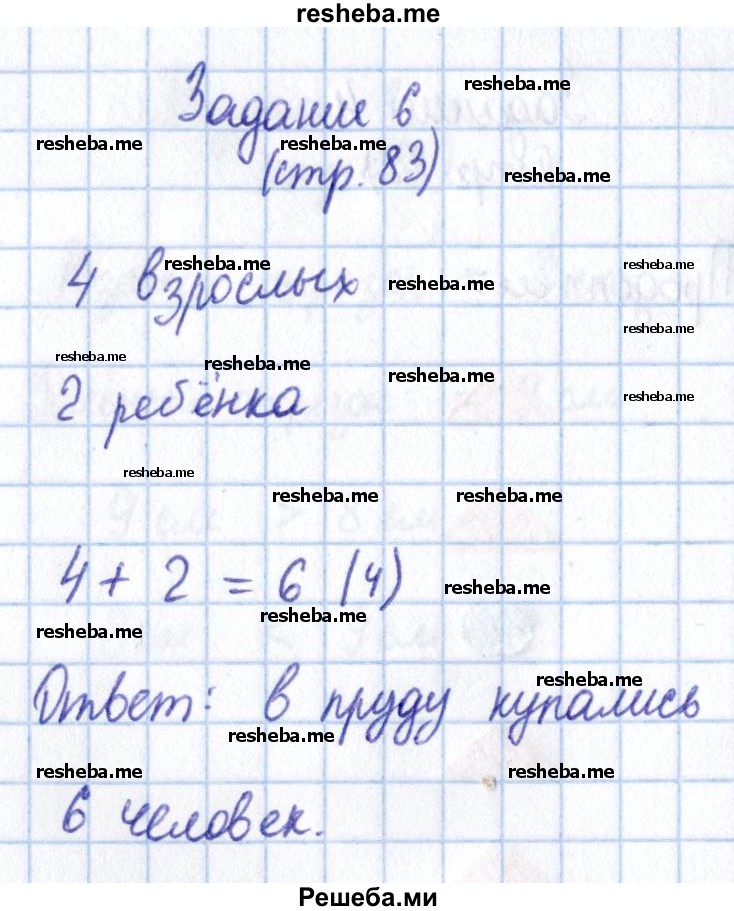 resheba.me
resheba.me
Задание 6
resheba.me resheba.me
(стр. 83) resheba.me
resheba.me resheba.me
4 взрослых resheba.me
resheba.me
resheba.me resheba.me
resheba.me resheba.me
2 ребёнка
resheba.me
resheba.me resheba.me
4 + 2 = 6 (ч) resheba.me
resheba.me resheba.me
resheba.me
Ответ: в пруду купались
resheba.me
resheba.me resheba.me
6 человек.
Решеба.ми